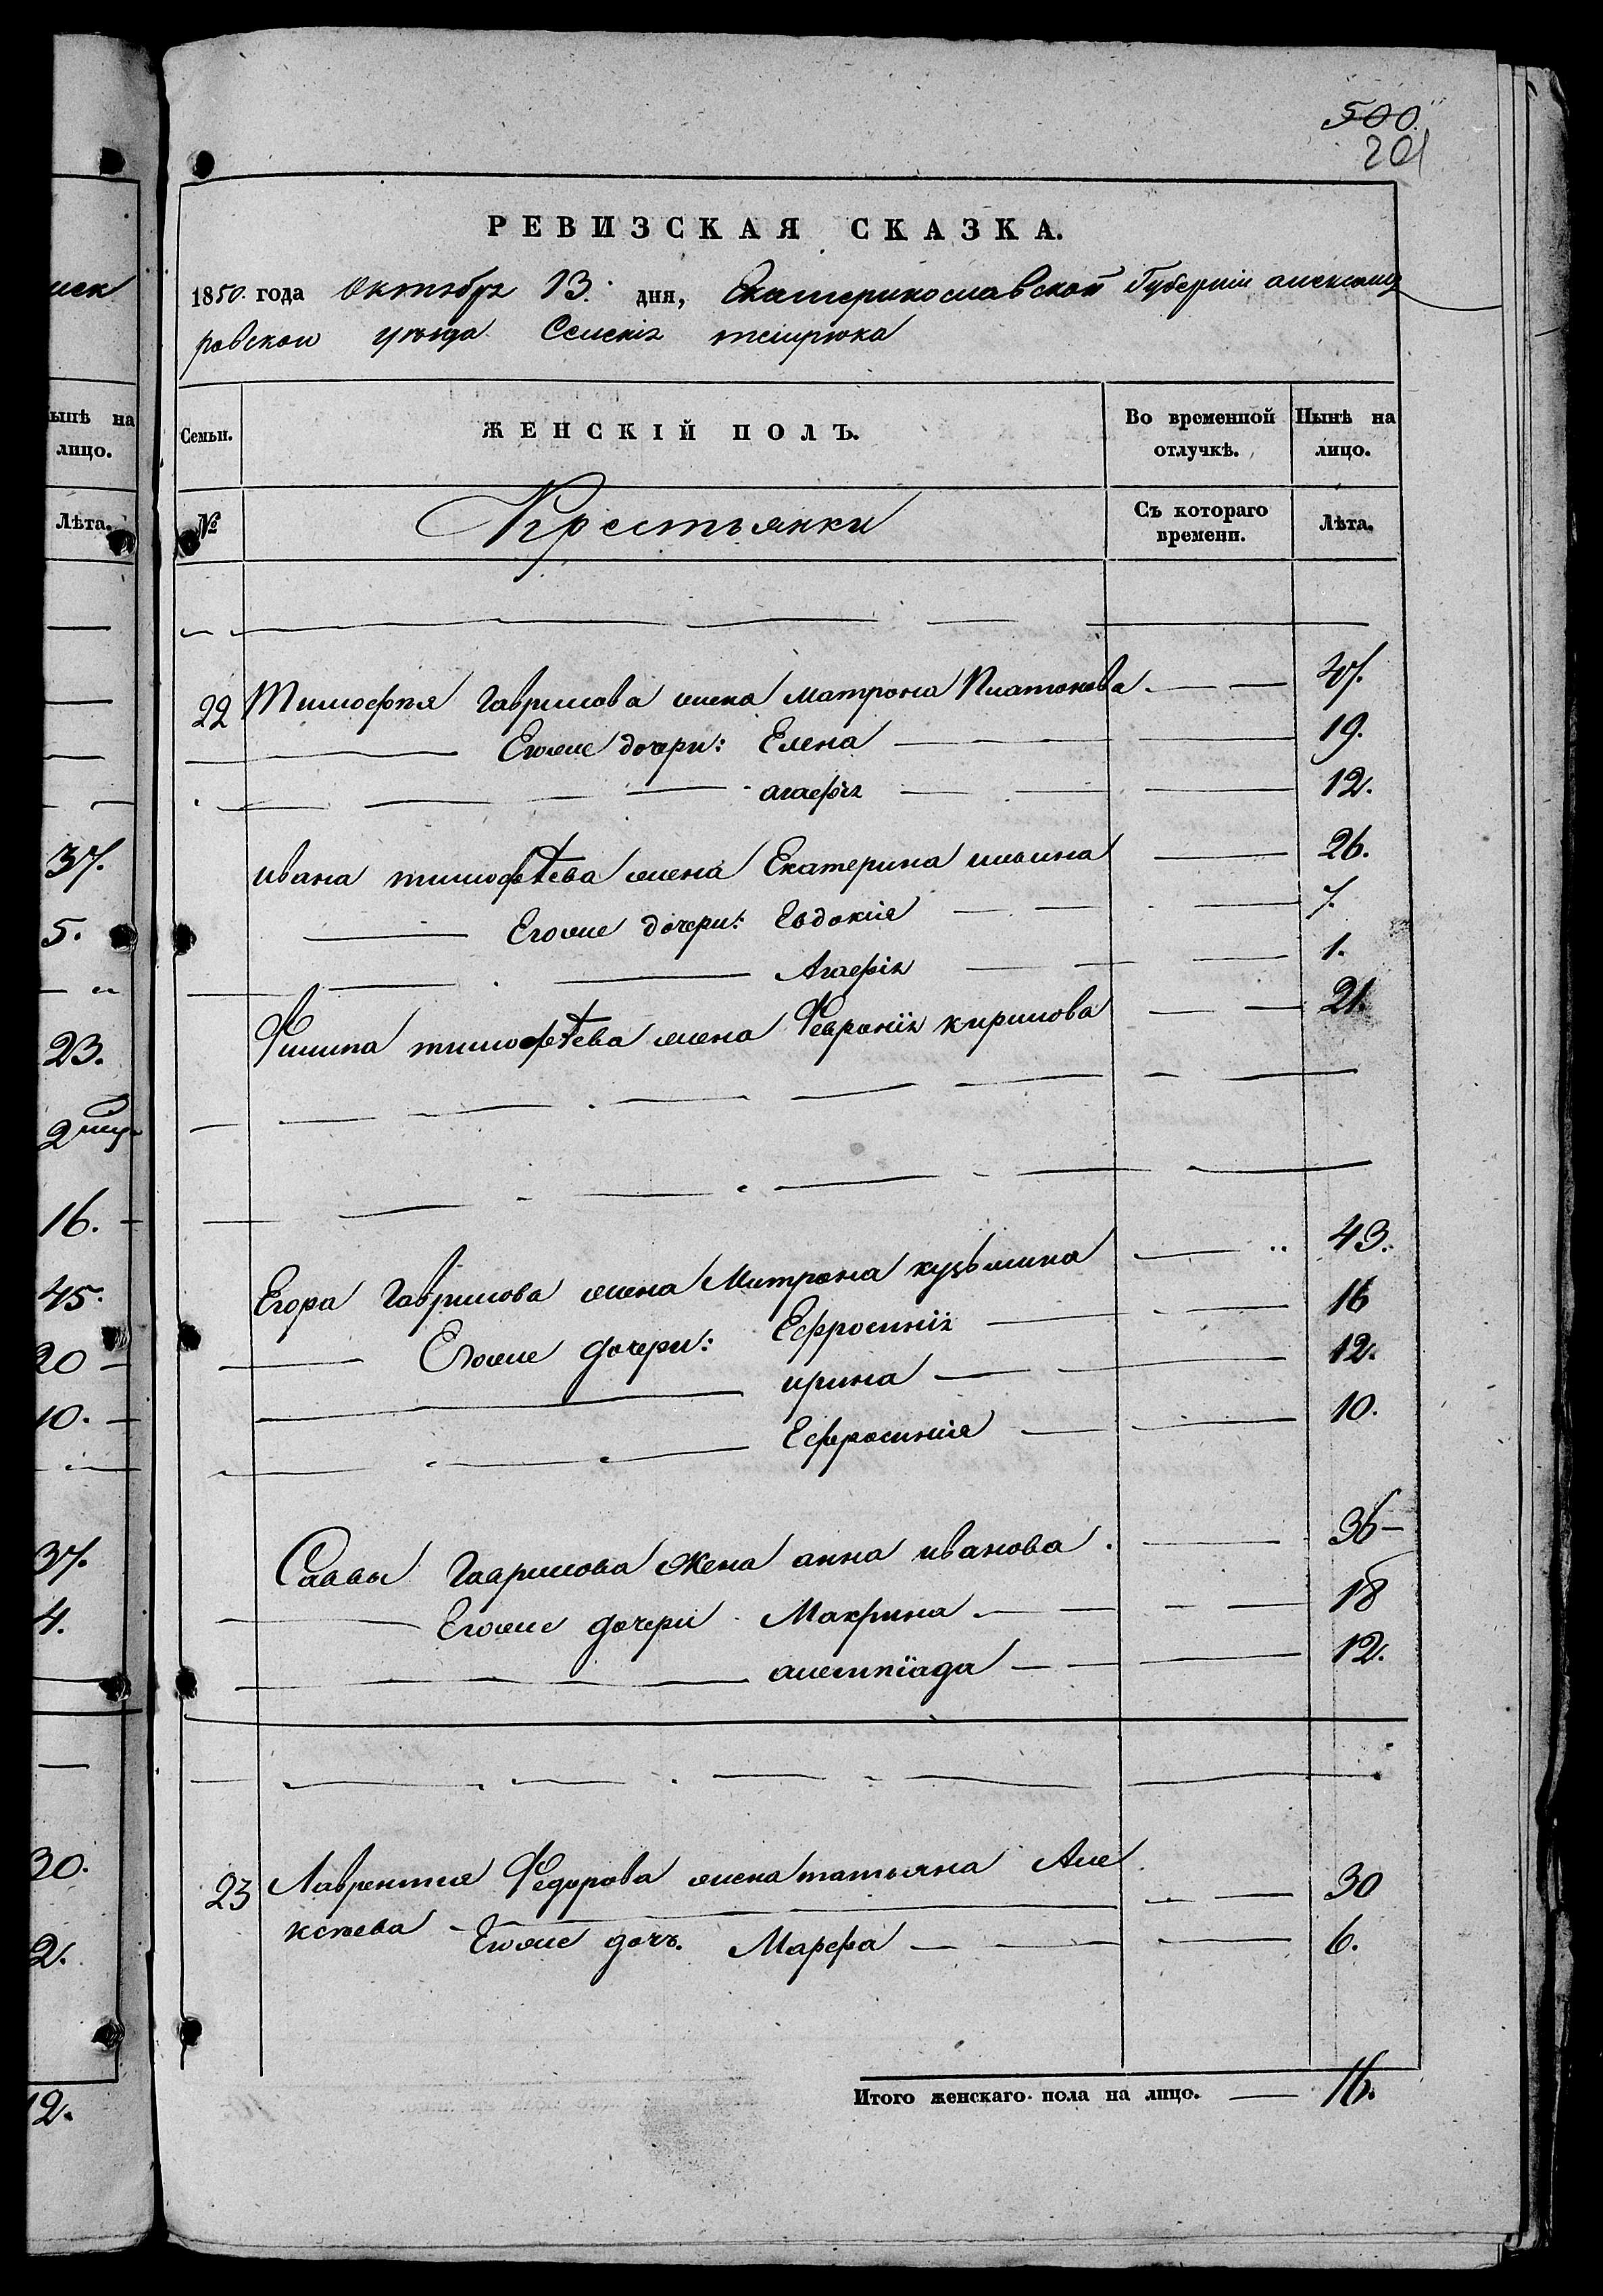 500.
201
РЕВИЗСКАЯ СКАЗКА.
1850. года Октября 13. дня, Екатеринославской Губернии александ
ровскои уѣзда Селенія темрюка
Семьи. ЖЕНСКІЙ ПОЛЪ. Во временной отлучкѣ. Нынѣ на лицо.
№ Крестьянки Съ котораго времени. Лѣта.
22 Тимофѣя Гаврилова жена матрона Платонова 47.
Егоже дочери: Елена 19.
агафія 12.
ивана тимофѣева жена Екатерина ильина 26.
Егоже дочери: Евдокия 7.
Агафія 1.
Филипа тимофѣева жена Февронія кирилова 21.
Егора Гаврилова жена Митрона кузьмина 43.
Егоже дочери: Ефросинія 16
ирина 12.
Ефросиния 10.
Саввы Гаврилова жена анна иванова 36
Егоже дочери Макрина 18
алемпіада 12.
23 Лаврентия Федорова жена татьяна Але 30
ксѣева Егоже дочь. Марфа 6.
Итого женскаго пола на лицо. 16.
ынѣ на
лицо.
Лѣта.
37.
5.
23.
2
16.
45.
20
10.
37.
4.
30.
2.
12.